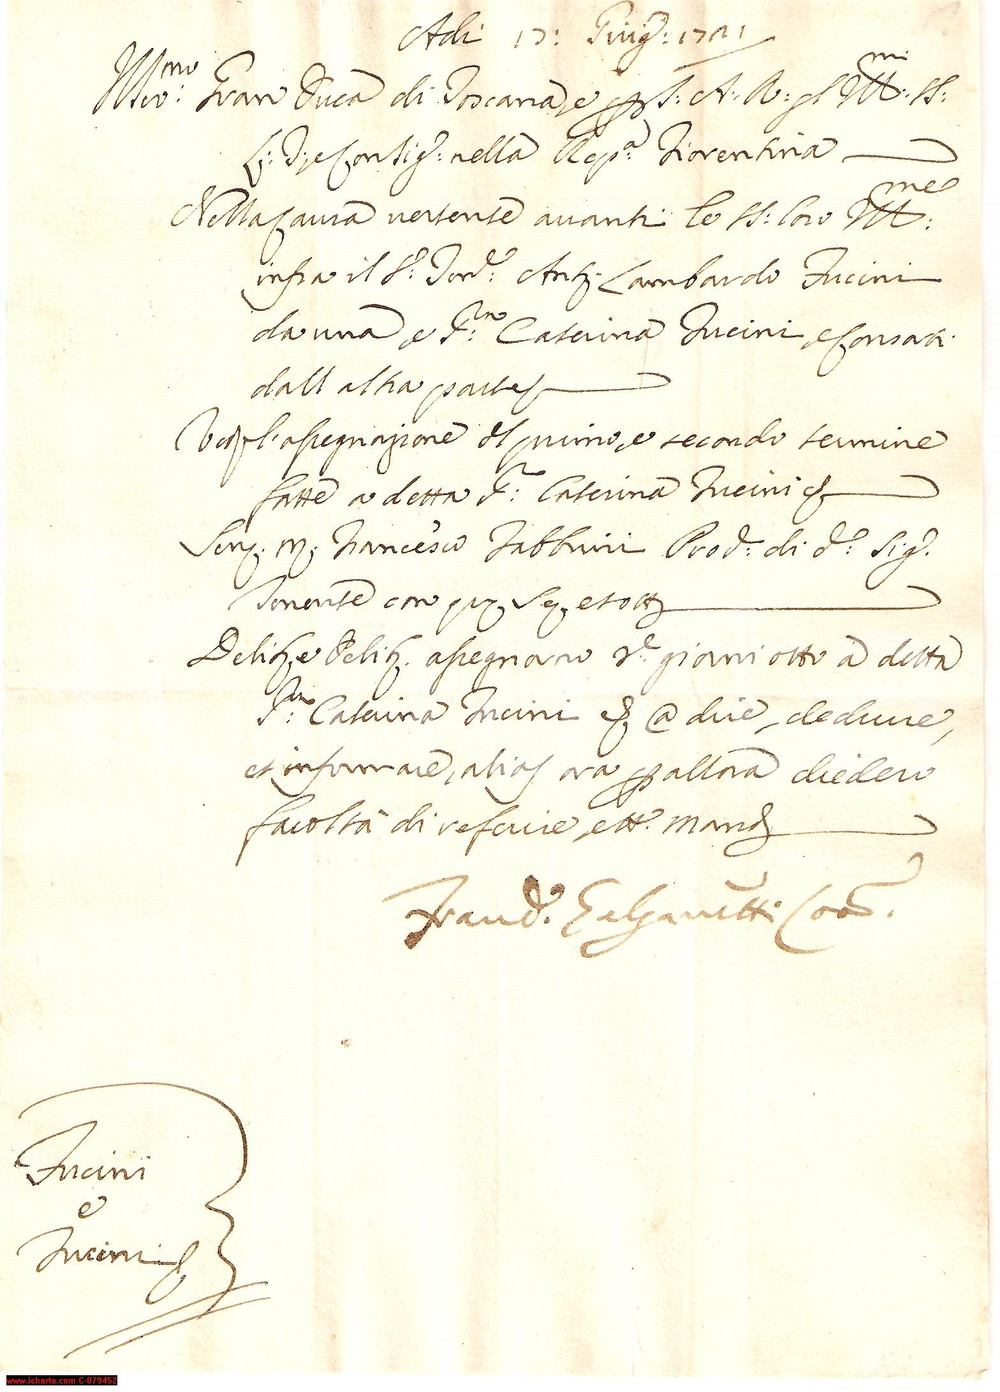 Adi 17: Giug: 1701
Ser:mo Gran Duca di Toscana, e p S: A: R: gl Ill:mi SS:
L: T: e Consig: nella Rep:a Fiorentina
Nella causa vertente avanti le SS: loro Ill:me
infra il S: Ten:e Ant: Lombardo Fucini
da una, e S:ra Caterina Fucini, e Consorti
dall altra parte
l'assegnazione del primo, e secondo termine
fatte a detta S:ra Caterina Fucini
m: Francesco Fabbrini Prod:e di d:o Sig:
Tenente con
Delib: e Delib: assegnarno giorni otto a detta
S:ra Caterina Fucini @ dire, dedurre,
et informare, alias ora p allora diedero
facoltà di referire, ett: mand
Franc:o Galganetti Coad:
Fucini
e
Fucini
www.icharta.com C-079452